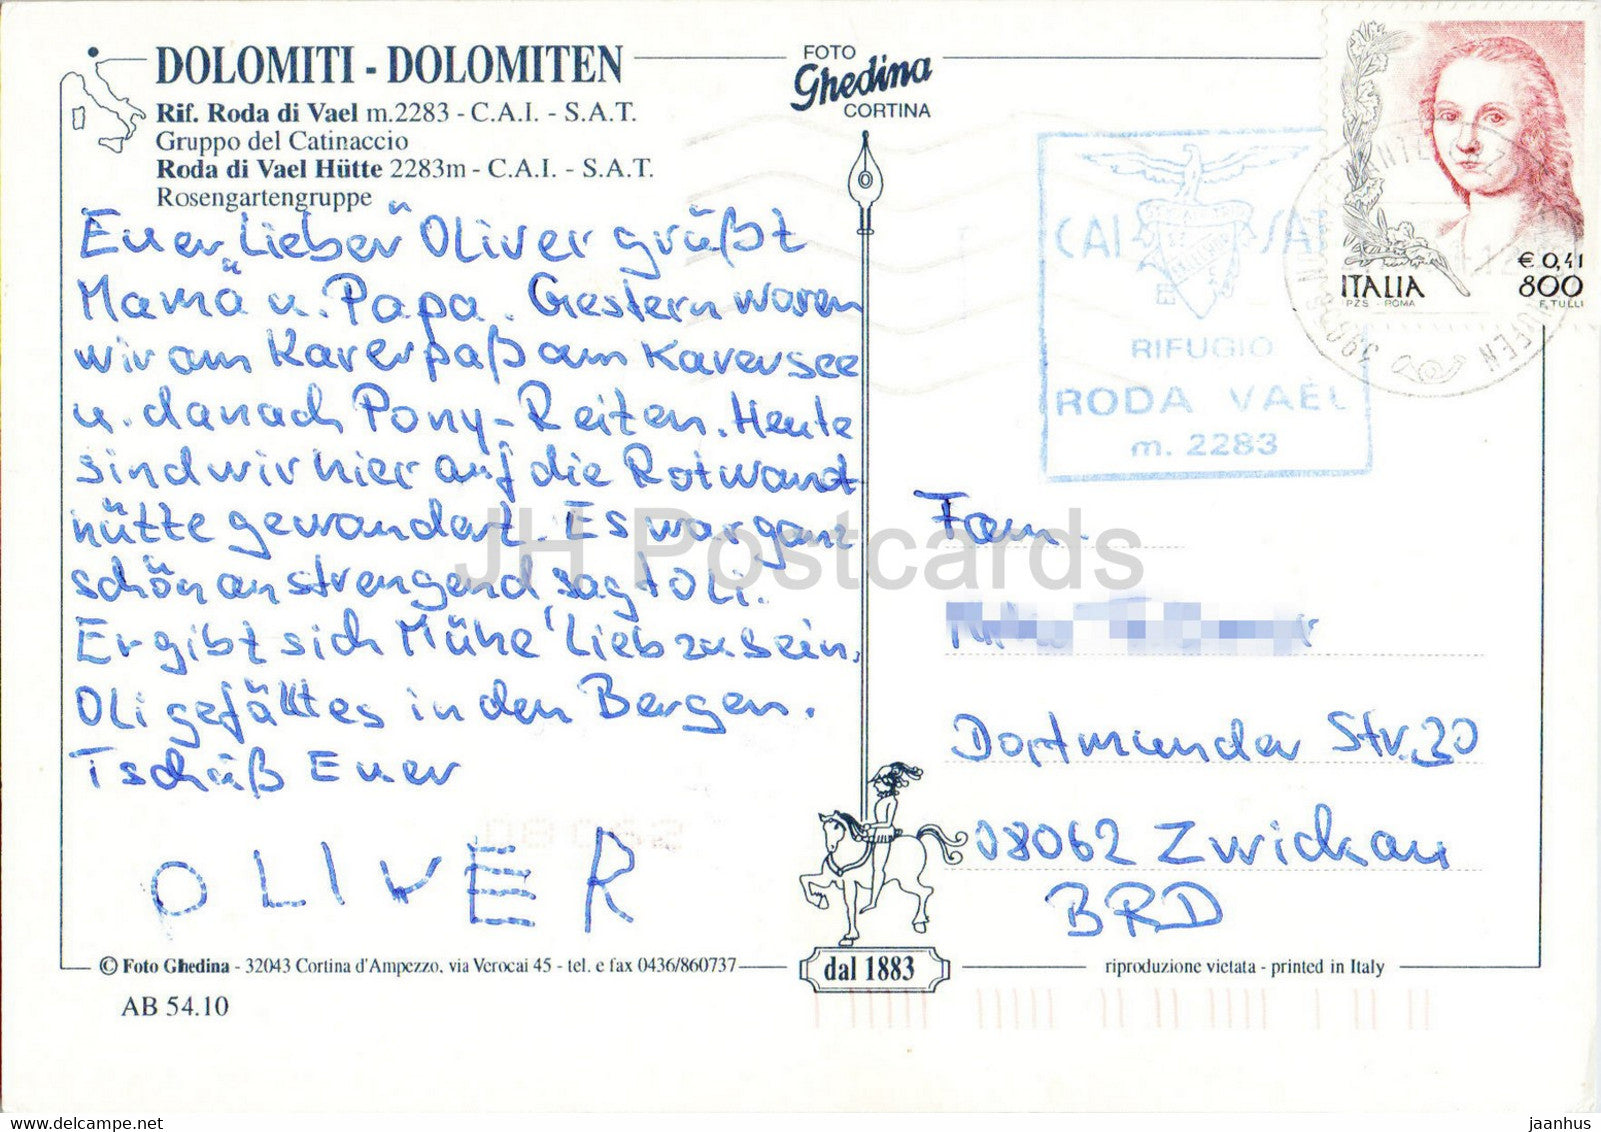 DOLOMITI - DOLOMITEN
Rif. Roda di Vael m.2283 - C.A.I. - S.A.T.
Gruppo del Catinaccio
Roda di Vael Hütte 2283m - C.A.I. - S.A.T.
Rosengartengruppe
Euer „Lieber“ Oliver grüßt
Mama u. Papa. Gestern waren
wir am Karerpaß am Karersee
u. danach Pony-Reiten. Heute
sind wir hier auf die Rotwand
hütte gewandert. Es war ganz
schön anstrengend, sagt Oli.
Er gibt sich Mühe 'Lieb zu sein.
Oli gefällt es in den Bergen.
Tschüß Euer
OLIVER
© Foto Ghedina - 32043 Cortina d'Ampezzo, via Verocai 45 - tel. e fax 0436/860737
AB 54.10
FOTO
Ghedina
CORTINA
dal 1883
CAI SAT
RIFUGIO
RODA VAÈL
m. 2283
€ 0,41
ITALIA 800
PZS - ROMA F. TULLI
Fam.
Dortmunder Str. 30
08062 Zwickau
BRD
riproduzione vietata - printed in Italy
JH Postcards
delcampe.net
jaanhus